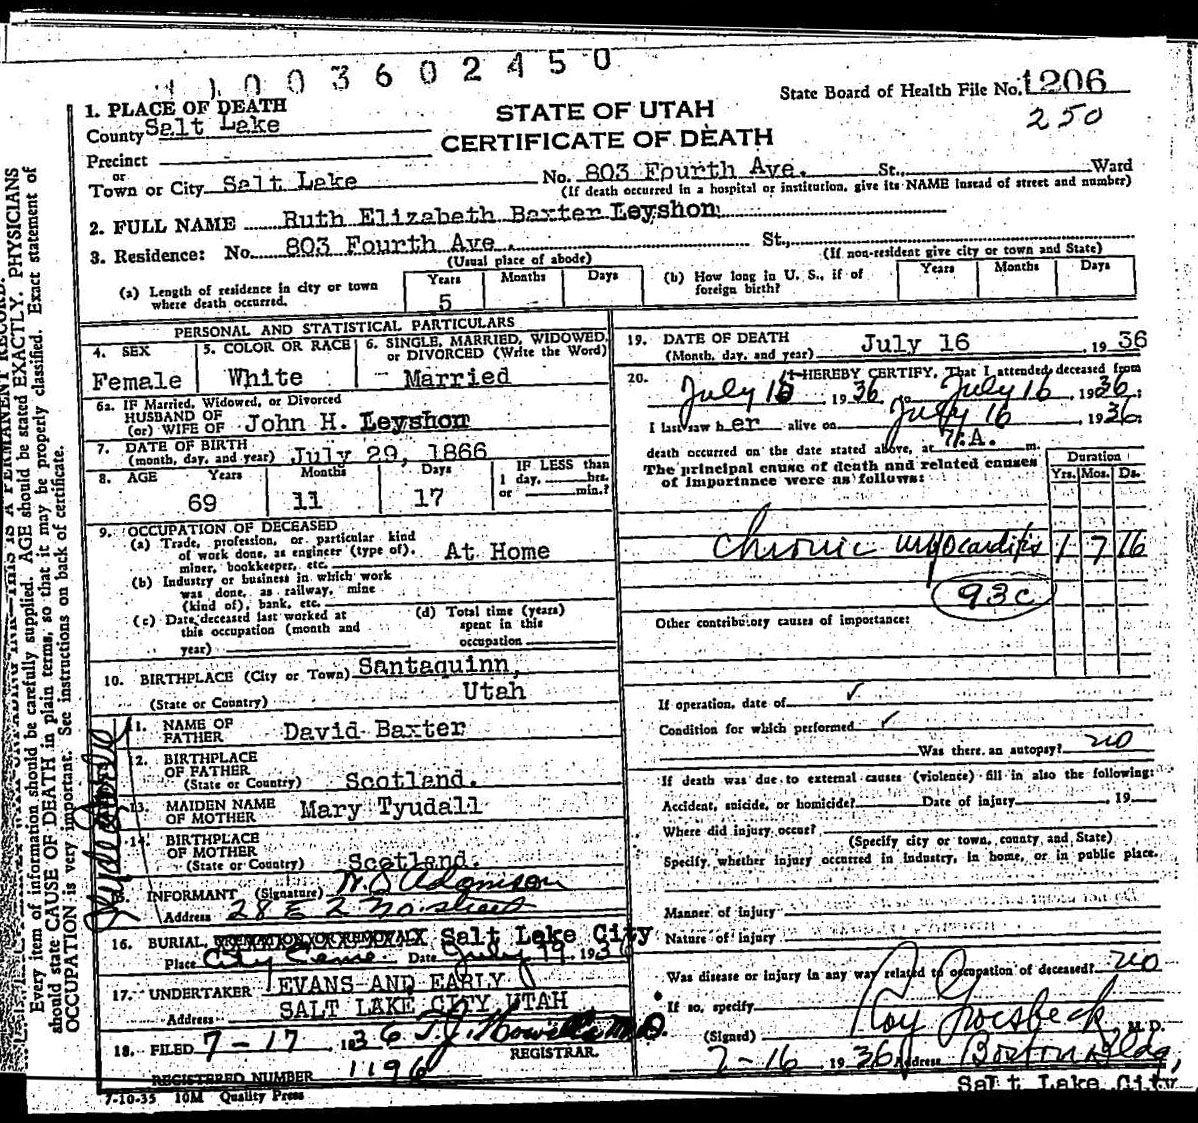 1 1 0 0 3 6 0 2 4 5 0
State Board of Health File No. 1206
250
STATE OF UTAH
CERTIFICATE OF DEATH
1. PLACE OF DEATH
County Salt Lake
Precinct
or
Town or City Salt Lake No. 803 Fourth Ave. St., Ward
(If death occurred in a hospital or institution, give its NAME instead of street and number)
2. FULL NAME Ruth Elizabeth Baxter Leyshon
3. Residence: No. 803 Fourth Ave. St.,
(Usual place of abode) (If non-resident give city or town and State)
(a) Length of residence in city or town where death occurred. Years 5 Months Days
(b) How long in U. S., if of foreign birth? Years Months Days
PERSONAL AND STATISTICAL PARTICULARS
4. SEX Female
5. COLOR OR RACE White
6. SINGLE, MARRIED, WIDOWED, or DIVORCED (Write the Word) Married
6a. IF Married, Widowed, or Divorced
HUSBAND OF
(or) WIFE OF John H. Leyshon
7. DATE OF BIRTH
(month, day, and year) July 29, 1866
8. AGE Years Months Days IF LESS than
1 day, hrs.
or min.?
69 11 17
9. OCCUPATION OF DECEASED
(a) Trade, profession, or particular kind
of work done, as engineer (type of), At Home
miner, bookkeeper, etc.
(b) Industry or business in which work
was done, as railway, mine
(kind of), bank, etc.
(c) Date deceased last worked at
this occupation (month and
year)
(d) Total time (years)
spent in this
occupation
10. BIRTHPLACE (City or Town) Santaquinn,
(State or Country) Utah
11. NAME OF
FATHER David Baxter
12. BIRTHPLACE
OF FATHER
(State or Country) Scotland.
13. MAIDEN NAME
OF MOTHER Mary Tyudall
14. BIRTHPLACE
OF MOTHER
(State or Country) Scotland.
15. INFORMANT (Signature) W. S. Adamson
Address 28 E 2 No street
16. BURIAL, CREMATION OR REMOVAL Salt Lake City
Place City Ceme. Date July 19, 1936
17. UNDERTAKER EVANS AND EARLY
Address SALT LAKE CITY, UTAH
18. FILED 7-17 1936 T. J. Howells M.D.
REGISTRAR.
REGISTERED NUMBER 1196
7-10-35 10M Quality Press
19. DATE OF DEATH
(Month, day, and year) July 16, 1936
20. I HEREBY CERTIFY, That I attended deceased from
July 16 1936, to July 16, 1936;
I last saw her alive on July 16, 1936;
death occurred on the date stated above, at 7:A. m.
The principal cause of death and related causes
of importance were as follows:
Duration
Yrs. Mos. Ds.
Chronic myocarditis 1 7 16
93c
Other contributory causes of importance:
If operation, date of ✓
Condition for which performed ✓
Was there an autopsy? no
If death was due to external causes (violence) fill in also the following:
Accident, suicide, or homicide? Date of injury , 19
Where did injury occur?
(Specify city or town, county and State)
Specify whether injury occurred in industry, in home, or in public place.
Manner of injury
Nature of injury
Was disease or injury in any way related to occupation of deceased? no
If so, specify
(Signed) Roy Groesbeck, M. D.
7-16 1936 Address Boston Bldg,
Salt Lake City
Every item of information should be carefully supplied. AGE should be stated EXACTLY. PHYSICIANS
should state CAUSE OF DEATH in plain terms, so that it may be properly classified. Exact statement of
OCCUPATION is very important. See instructions on back of certificate.